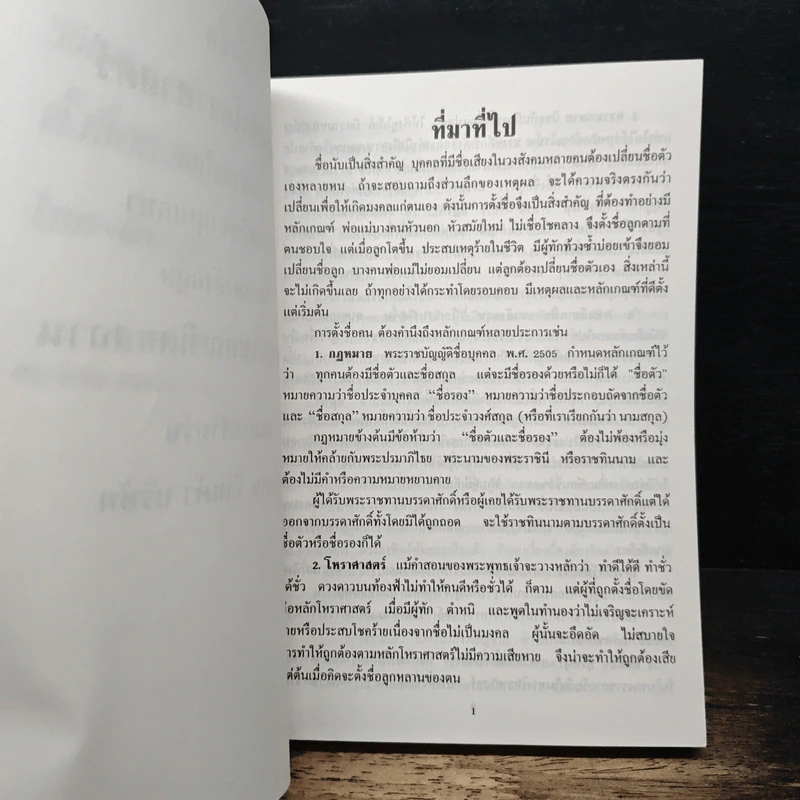 ที่มาที่ไป
ชื่อนับเป็นสิ่งสำคัญ บุคคลที่มีชื่อเสียงในวงสังคมหลายคนต้องเปลี่ยนชื่อตัว
เองหลายหน ถ้าจะสอบถามถึงส่วนลึกของเหตุผล จะได้ความจริงตรงกันว่า
เปลี่ยนเพื่อให้เกิดมงคลแก่ตนเอง ดังนั้นการตั้งชื่อจึงเป็นสิ่งสำคัญ ที่ต้องทำอย่างมี
หลักเกณฑ์ พ่อแม่บางคนหัวนอก หัวสมัยใหม่ ไม่เชื่อโชคลาง จึงตั้งชื่อลูกตามที่
ตนชอบใจ แต่เมื่อลูกโตขึ้น ประสบเหตุร้ายในชีวิต มีผู้ทักท้วงซ้ำบ่อยเข้าจึงยอม
เปลี่ยนชื่อลูก บางคนพ่อแม่ไม่ยอมเปลี่ยน แต่ลูกต้องเปลี่ยนชื่อตัวเอง สิ่งเหล่านี้
จะไม่เกิดขึ้นเลย ถ้าทุกอย่างได้กระทำโดยรอบคอบ มีเหตุผลและหลักเกณฑ์ที่ดีตั้ง
แต่เริ่มต้น
การตั้งชื่อคน ต้องคำนึงถึงหลักเกณฑ์หลายประการเช่น
1. กฎหมาย พระราชบัญญัติชื่อบุคคล พ.ศ. 2505 กำหนดหลักเกณฑ์ไว้
ว่า ทุกคนต้องมีชื่อตัวและชื่อสกุล แต่จะมีชื่อรองด้วยหรือไม่ก็ได้ "ชื่อตัว"
หมายความว่าชื่อประจำบุคคล "ชื่อรอง" หมายความว่าชื่อประกอบถัดจากชื่อตัว
และ "ชื่อสกุล" หมายความว่า ชื่อประจำวงศ์สกุล (หรือที่เราเรียกกันว่า นามสกุล)
กฎหมายข้างต้นมีข้อห้ามว่า "ชื่อตัวและชื่อรอง" ต้องไม่พ้องหรือมุ่ง
หมายให้คล้ายกับพระปรมาภิไธย พระนามของพระราชินี หรือราชทินนาม และ
ต้องไม่มีคำหรือความหมายหยาบคาย
ผู้ได้รับพระราชทานบรรดาศักดิ์หรือผู้เคยได้รับพระราชทานบรรดาศักดิ์แต่ได้
ออกจากบรรดาศักดิ์ทั้งโดยมิได้ถูกถอด จะใช้ราชทินนามตามบรรดาศักดิ์ตั้งเป็น
ชื่อตัวหรือชื่อรองก็ได้
2. โหราศาสตร์ แม้คำสอนของพระพุทธเจ้าจะวางหลักว่า ทำดีได้ดี ทำชั่ว
ได้ชั่ว ดวงดาวบนท้องฟ้าไม่ทำให้คนดีหรือชั่วได้ ก็ตาม แต่ผู้ที่ถูกตั้งชื่อโดยขัด
ต่อหลักโหราศาสตร์ เมื่อมีผู้ทัก ตำหนิ และพูดในทำนองว่าไม่เจริญจะเคราะห์
ร้ายหรือประสบโชคร้ายเนื่องจากชื่อไม่เป็นมงคล ผู้นั้นจะอึดอัด ไม่สบายใจ
การทำให้ถูกต้องตามหลักโหราศาสตร์ไม่มีความเสียหาย จึงน่าจะทำให้ถูกต้องเสีย
แต่ต้นเมื่อคิดจะตั้งชื่อลูกหลานของตน
1